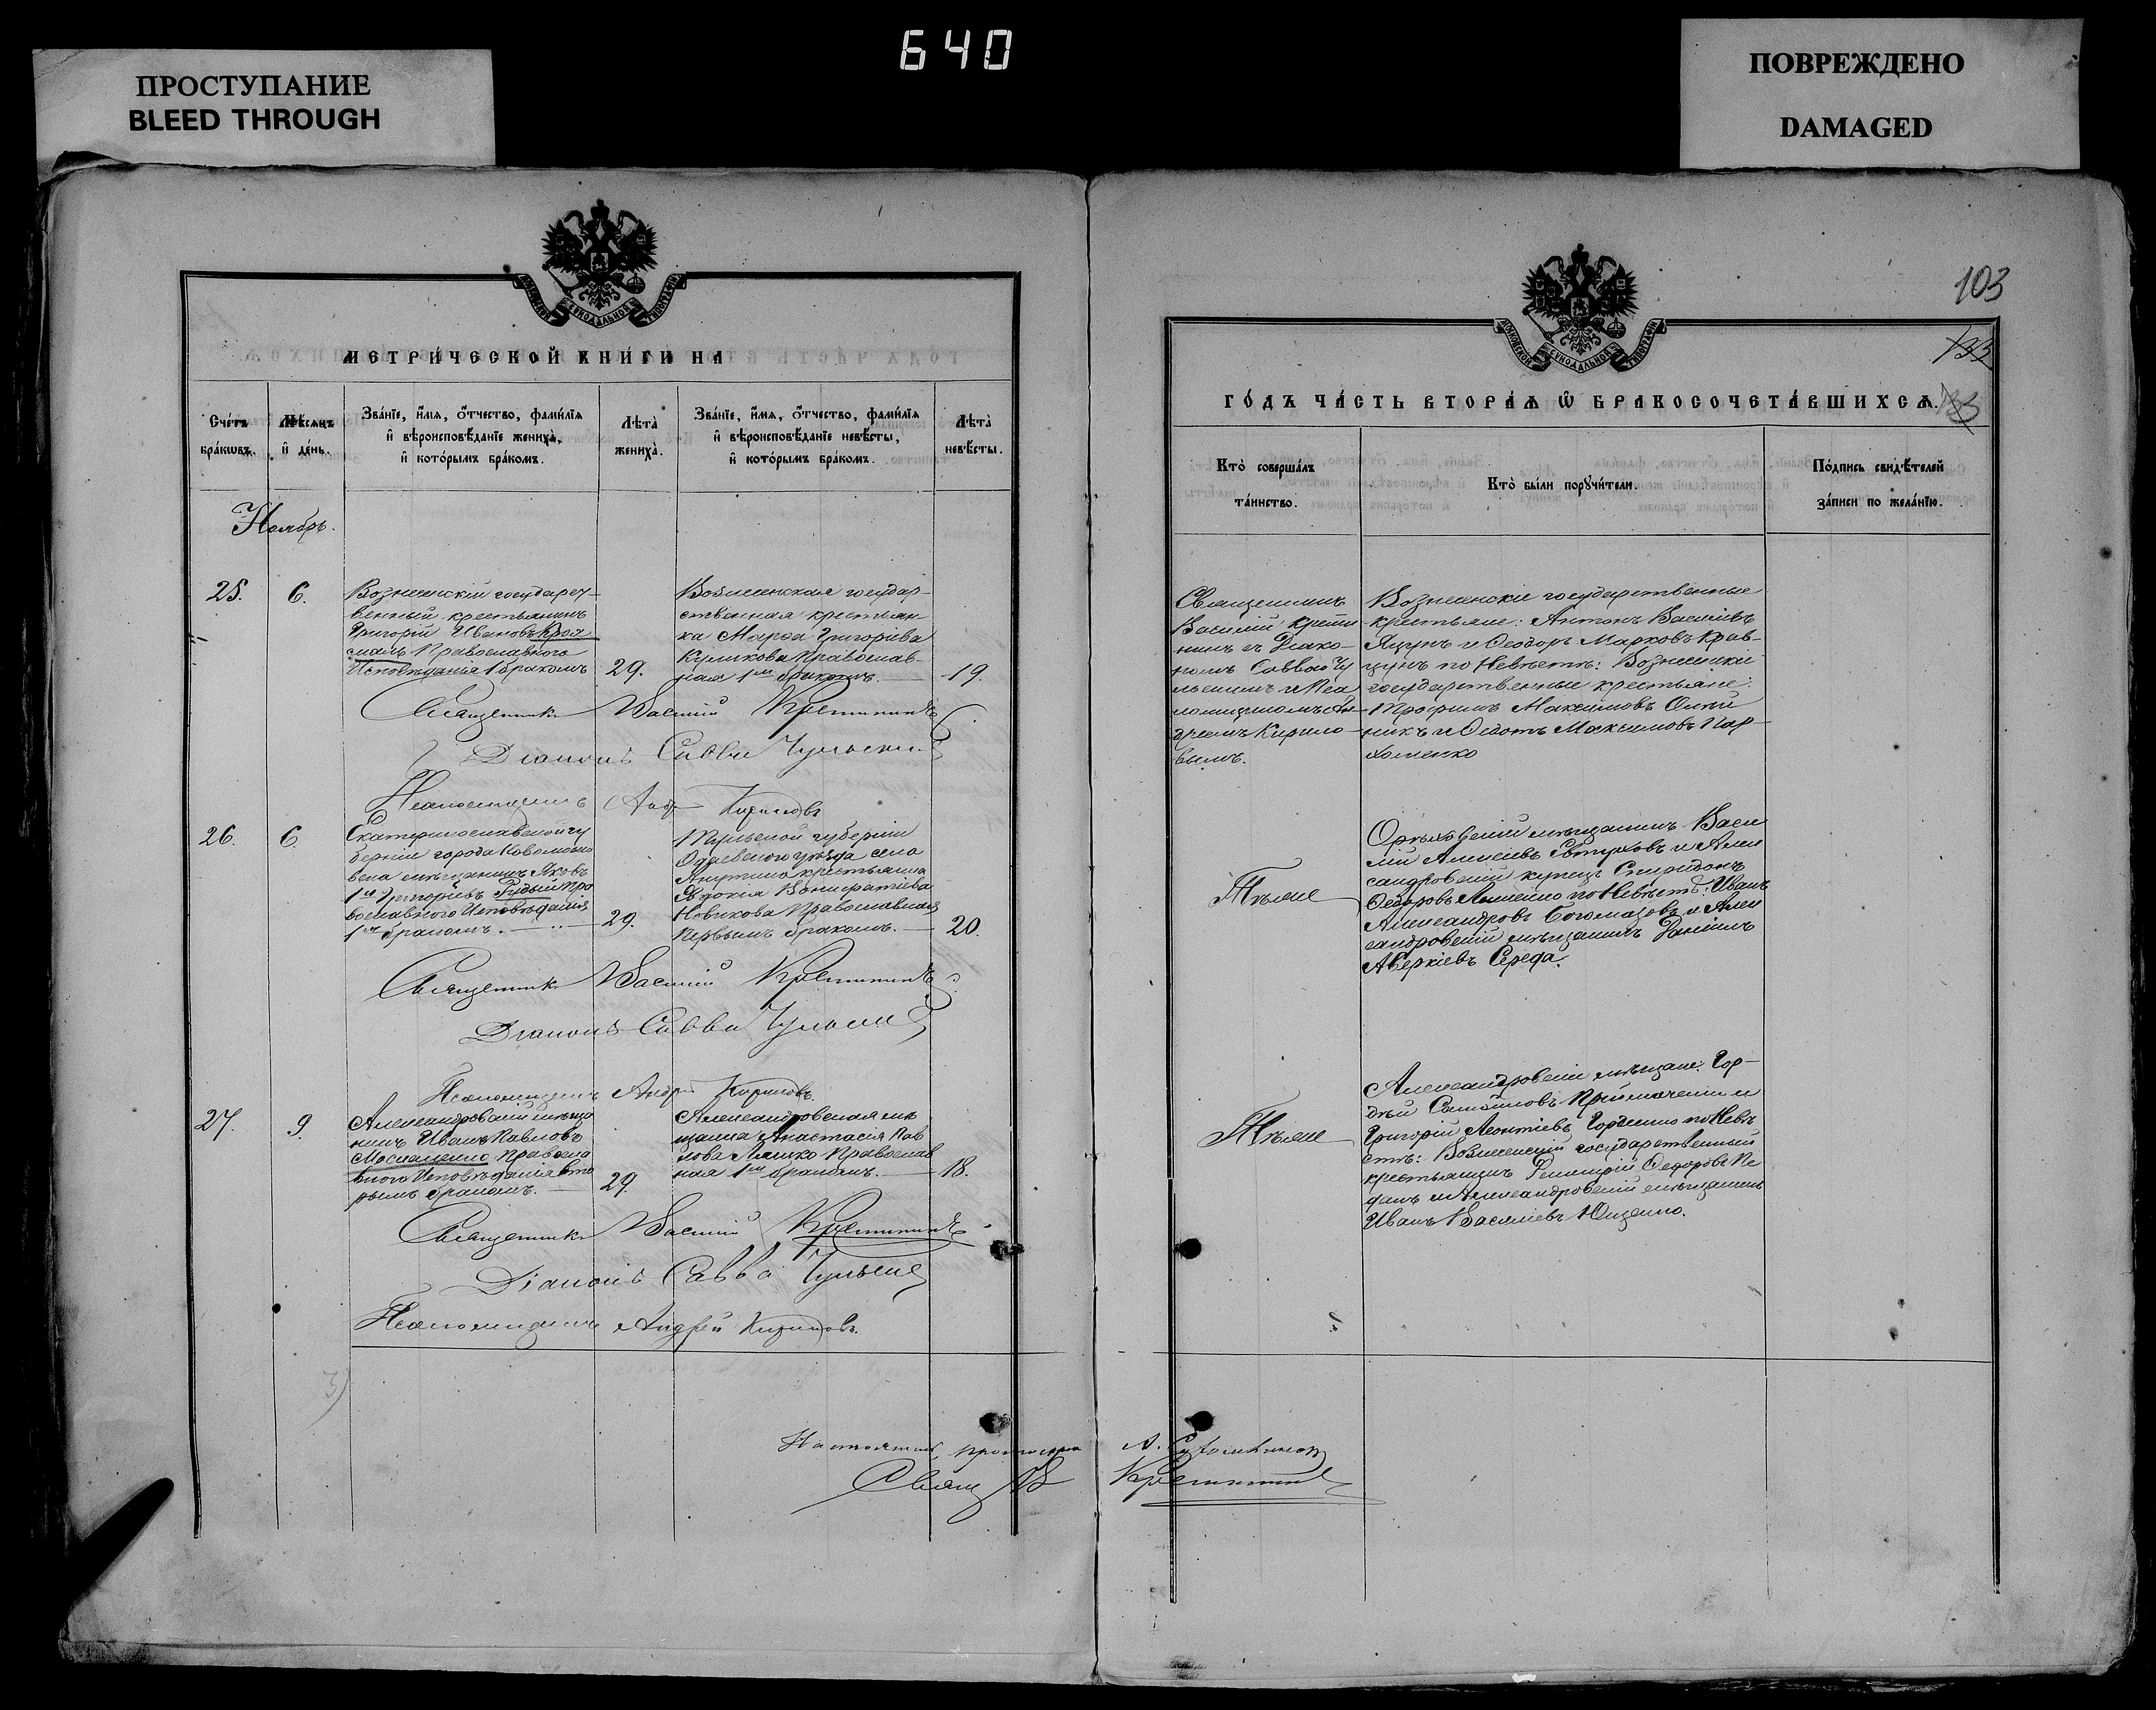 640
ПРОСТУПАНИЕ
BLEED THROUGH
ПОВРЕЖДЕНО
DAMAGED
МОСКОВСКОЙ СѴНОДАЛЬНОЙ ТИПОГРАФІИ
МЕТРИ́ЧЕСКОЙ КНИ́ГИ НА
Сче́тъ бра́кѡвъ.
Мѣ́сяцъ и҆ де́нь.
Зва́нїе, и҆́мѧ, ѻ҆́тчество, фами́лїѧ
и҆ вѣроисповѣ́данїе жениха̀,
и҆ кото́рымъ бра́комъ.
Лѣта̀ жениха̀.
Зва́нїе, и҆́мѧ, ѻ҆́тчество, фами́лїѧ
и҆ вѣроисповѣ́данїе невѣ́сты,
и҆ кото́рымъ бра́комъ.
Лѣта̀ невѣ́сты.
Ноябрь.
25.
6.
Вознесенскій государст-
венный крестьянинъ
Григорій Ивановъ
Православного
Исповѣданія 1 бракомъ
29.
Вознесенская государ-
ственная крестьян-
ка Марѳа Григоріева
Куликова Православ-
ная 1мъ бракомъ.
19.
Священникъ Василій Крестининъ
Діаконъ Савва Чульскій
Псаломщикъ Андр Кириловъ
26.
6.
Екатеринославской гу
берніи города Новомоско
вска мѣщанинъ Яковъ
Григорьевъ Рудый Пра
вославного Исповѣданія
1мъ бракомъ.
29.
Тульской губерніи
Одоевского уѣзда села
крестьянка
Евдокія
Новикова Православная
Первымъ бракомъ.
20.
Священникъ Василій Крестининъ
Діаконъ Савва Чульскій
Псаломщикъ Андрей Кириловъ.
27.
9.
Александровскій мѣща
нинъ Иванъ Павловъ
Москаленко Правосла
вного Исповѣданія вто
рымъ бракомъ.
29.
Александровская мѣ
щанка Анастасія Пав
лова Ляшко Православ
ная 1мъ бракомъ.
18.
Священникъ Василій Крестининъ
Діаконъ Савва Чульскій
Псаломщикъ Андрей Кириловъ.
3)
Настоятель протоіерей А.
Свящ В Крестининъ
103
133
МОСКОВСКОЙ СѴНОДАЛЬНОЙ ТИПОГРАФІИ
ГО́ДЪ ЧА́СТЬ ВТОРА́Ѧ Ѡ҆ БРАКОСОЧЕТА́ВШИХСѦ.
Кто̀ соверша́лъ
та́инство.
Кто̀ бы́ли порꙋчи́тели.
По́дпись свидѣ́телей
за́писи по жела́нїю.
Священникъ
Василій Крести
нинъ съ Діако-
номъ Саввою Чу
льскимъ и Пса
ломщикомъ Ан-
дреемъ Кирило-
вымъ.
Вознесенскіе государственные
крестьяне: Антонъ Василіевъ
Яцунъ и Ѳеодоръ Марковъ Крав-
цунъ по Невѣстѣ: Вознесенскіе
государственные крестьяне:
Трофимъ Максимовъ Олей
никъ и Ѳедотъ Максимовъ Пар
хоменко
Тѣ же
Орѣховскій мѣщанинъ Васи
лій Алексѣевъ и Алек
сандровскій купецъ Спиридонъ
Ѳедоровъ по Невѣстѣ: Иванъ
Александровъ Богомазовъ и Алек
сандровскій мѣщанинъ Даніилъ
Аверкіевъ Середа.
Тѣ же
Александровскіе мѣщане: Гор-
дѣй и
Григорій Леонтіевъ Гордіенко по Невѣ
стѣ: Вознесенскій государственный
крестьянинъ Ѳедоровъ
и Александровскій мѣщанинъ
Иванъ Василіевъ Ющенко.